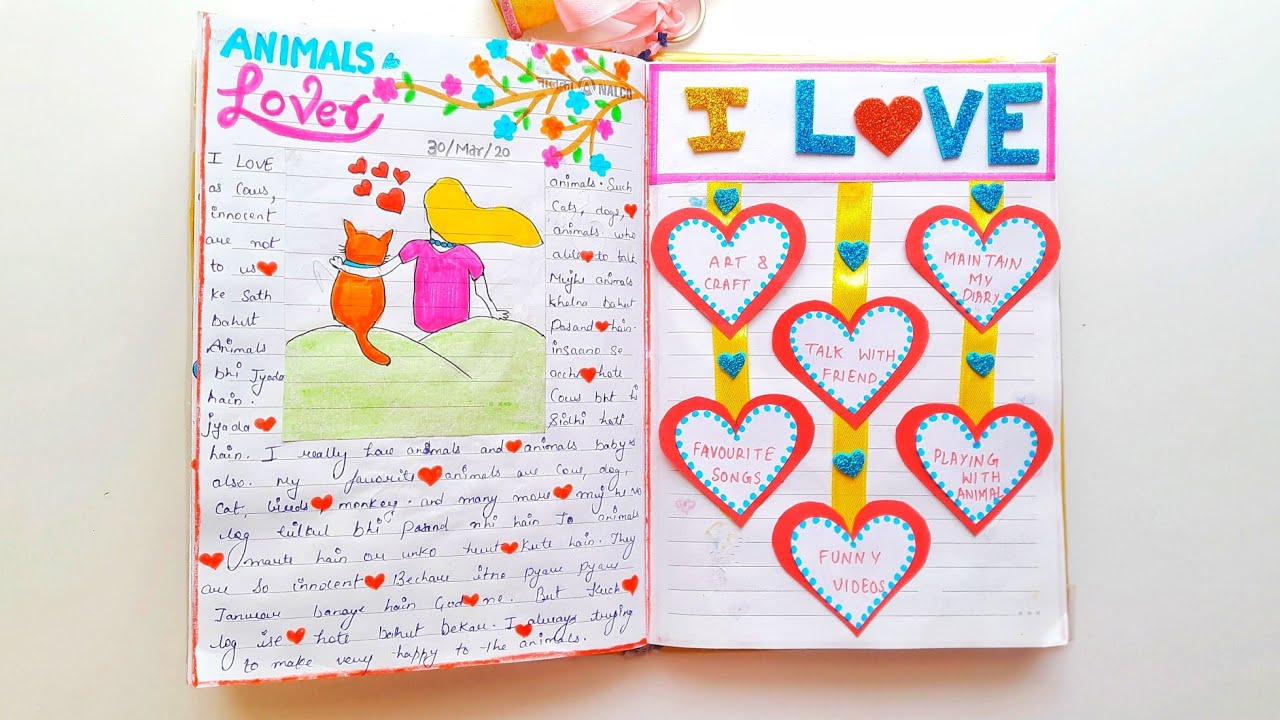 ANIMALS
Lover
नालको NALCO
30/Mar/20
I LOVE animals. Such
as Cows, Cats, dogs,
innocent animals. who
are not able to talk
to us Mujhe animals
ke Sath khelna bahut
Bahut Pasand hain.
Animals insaano se
bhi Jyada acche hote
hain. Cows bht hi
jyada Sidhi hoti
hain. I really love animals and animals baby's
also. My favorite animals are cow, dog,
Cat, birds monkey. and many more mujhe vo
log bilkul bhi Pasand nhi hain Jo animals
marte hain or unko hurt Kute hain. They
are So innocent Bechare itne pyare pyare
Janwar banaye hain God ne. But Kuch
log ise hote bahut bekar. I always trying
to make very happy to the animals.
I LOVE
ART &
CRAFT
MAINTAIN
MY
DIARY
TALK WITH
FRIEND
FAVOURITE
SONGS
PLAYING
WITH
ANIMAL
FUNNY
VIDEOS